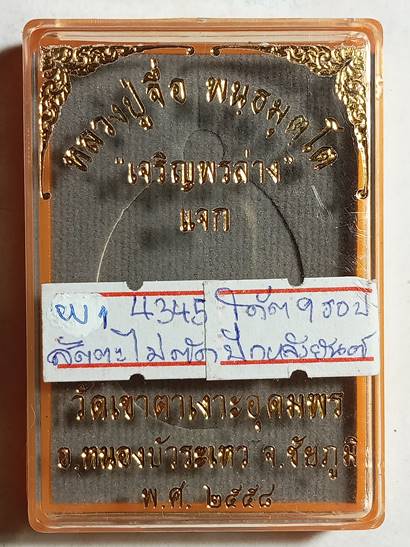 หลวงปู่จื่อ พนฺธมุตฺโต
"เจริญพรล่าง"
แจก
ผง 4345 โค๊ต 9 รอบ
สัตตะไม่ตัด ปีกหลังยันต์
วัดเขาตาเงาะอุดมพร
อ.หนองบัวระเหว จ.ชัยภูมิ
พ.ศ. ๒๕๕๘